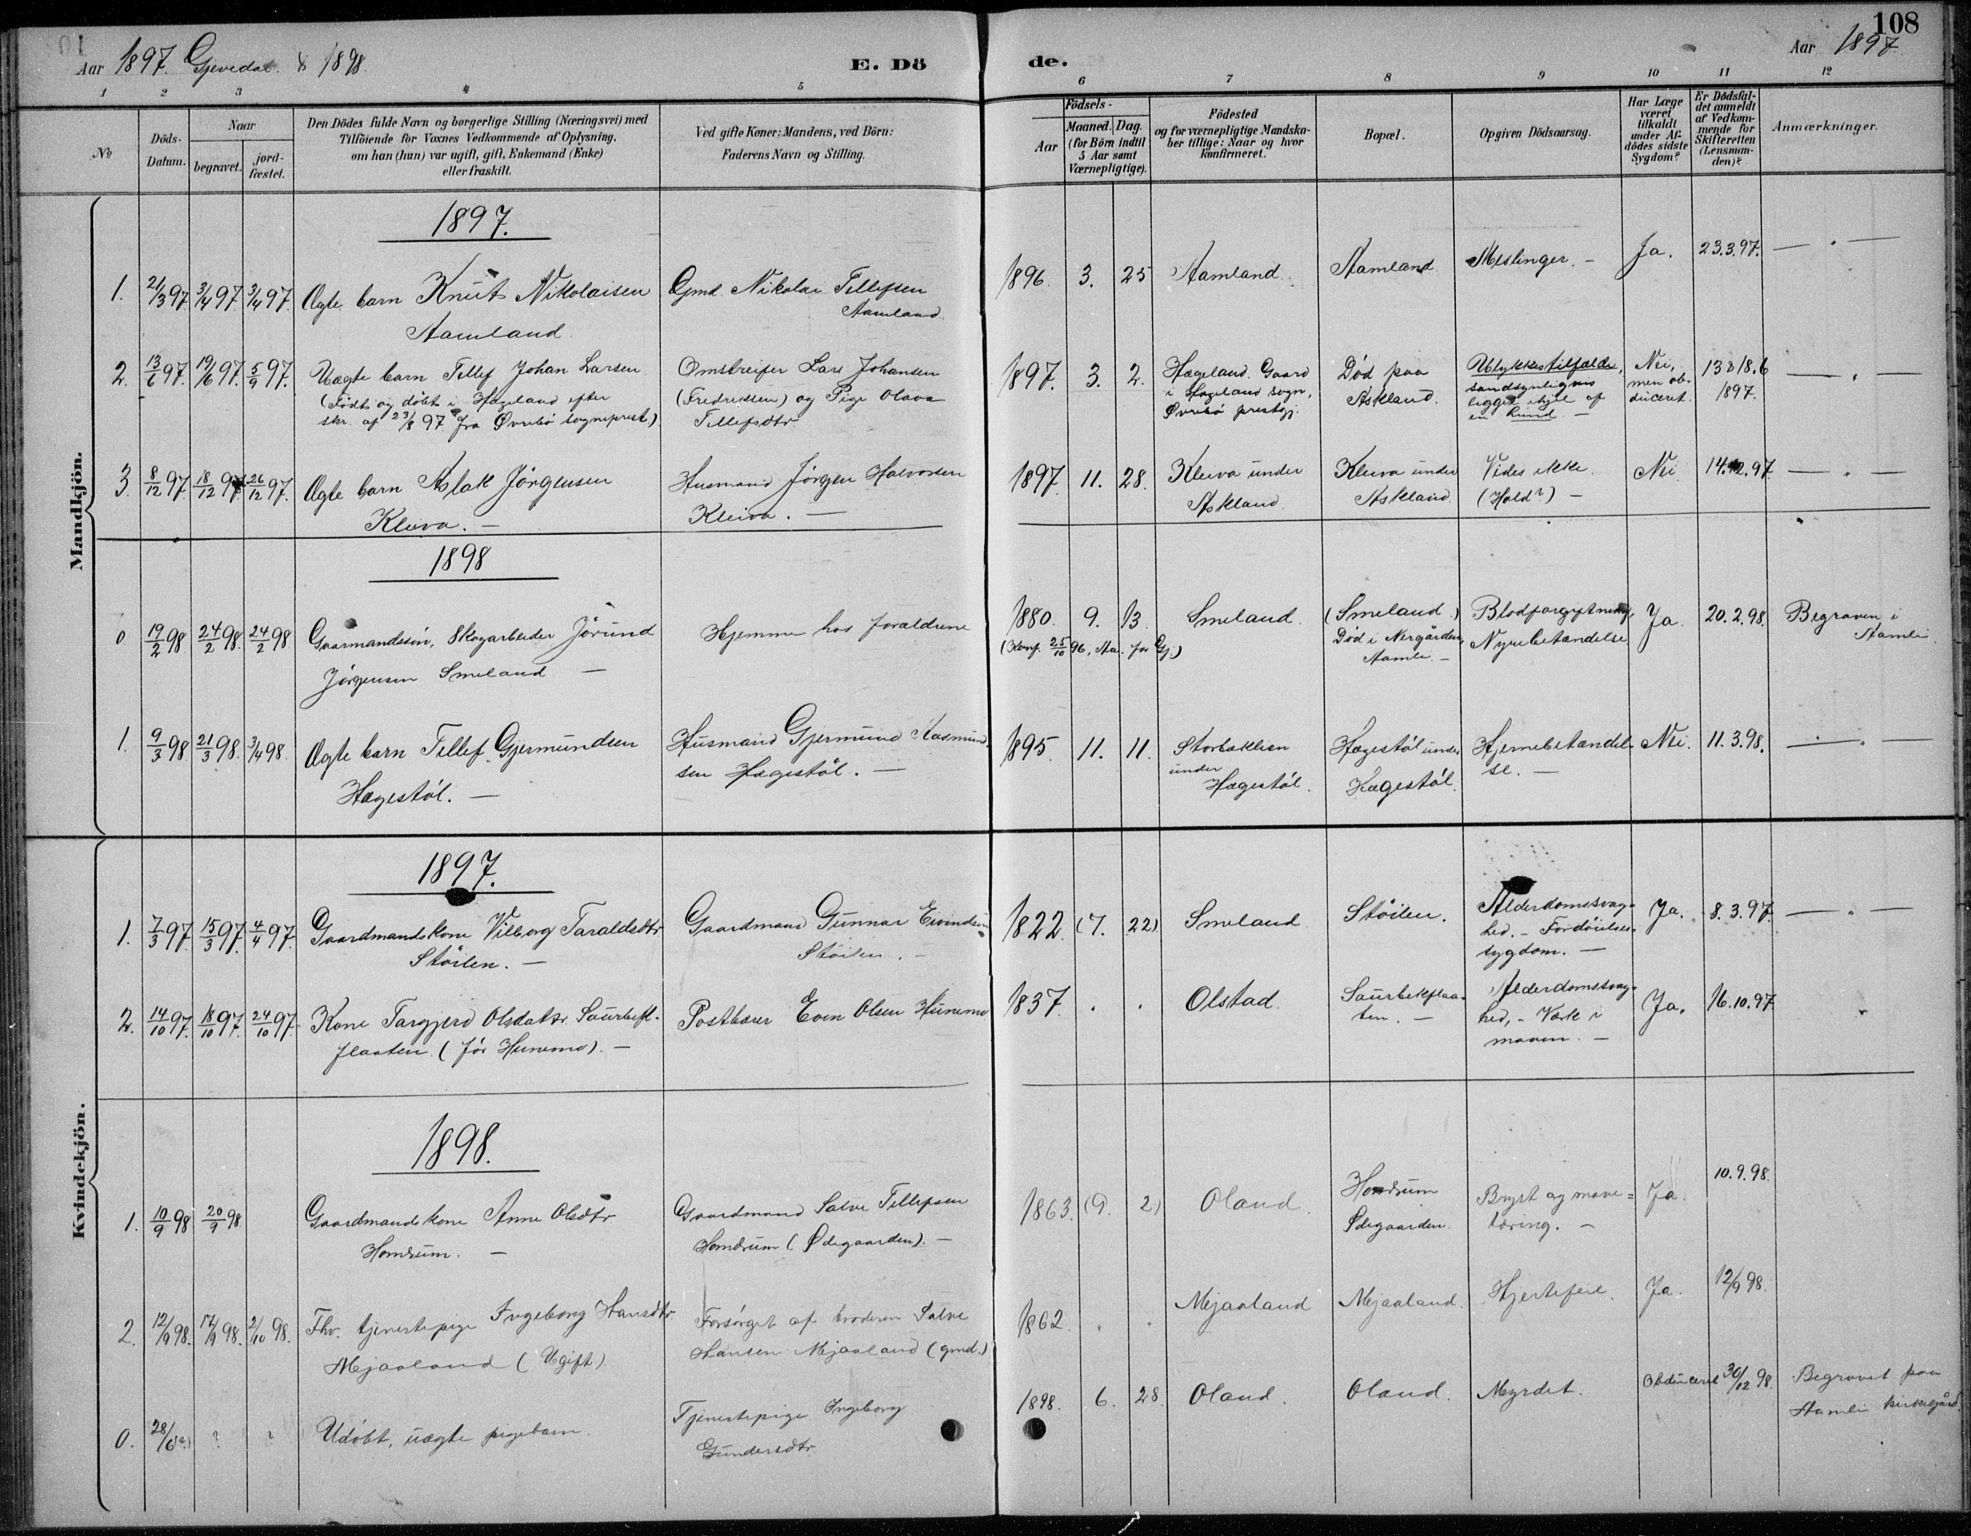 108
Aar 1897. Gjevedal. & 1898.
E. Dö
de.
Aar 1897
1 2 3 4 5
6 7 8 9 10 11 12
No
Döds-
Datum.
Naar
begravet.
jord-
fæstet.
Den Dödes fulde Navn og borgerlige Stilling (Næringsvei) med
Tilföiende for Voxnes Vedkommende af Oplysning,
om han (hun) var ugift, gift, Enkemand (Enke)
eller fraskilt.
Ved gifte Koner: Mandens, ved Börn:
Faderens Navn og Stilling.
Födsels-
Aar
Maaned. Dag.
(for Börn indtil
5 Aar samt
Værnepligtige).
Födested
og for værnepligtige Mandska-
ber tillige: Naar og hvor
konfirmeret.
Bopæl.
Opgiven Dödsaarsag.
Har Læge
været
tilkaldt
under Af-
dödes sidste
Sygdom?
Er Dödsfal-
det anmeldt
af Vedkom-
mende for
Skifteretten
(Lensman-
den)?
Anmærkninger.
Mandkjön.
1897.
1. 21/3 97. 3/4 97. 3/4 97. Ægte barn Knut Nikolaisen
Aamland.
Gmd. Nikolai Tellefsen
Aamland.
1896. 3. 25 Aamland. Aamland Meslinger. — Ja. 23.3.97. — " —
2. 13/6 97. 19/6 97. 5/9 97. Uægte barn Tellef Johan Larsen
(Födt og döbt i Hægeland efter
skr. af 23/8 97 fra Øvrebö sogneprest)
Omstreifer Lars Johansen
(Fredriksen) og Pige Olava
Tellefsdtr.
1897. 3. 2. Hægeland Gaard
i Hægeland sogn,
Øvrebö prestgj.
Död paa
Askland.
Ulykkestilfælde,
sandsynligvis
ligget ihjel af
en hund —
Nei,
men ob-
duceret.
13 & 18.6
1897.
— " —
3. 8/12 97. 18/12 97. 26/12 97. Ægte barn Aslak Jörgensen
Kleiva. —
Husmand Jörgen Halvorsen
Kleiva. —
1897. 11. 28. Kleiva under
Askland.
Kleiva under
Askland.
Vides ikke.
(Hold?) —
Nei 14.12.97. — " —
1898
0 19/2 98 24/2 98. 24/2 98 Gaarmandssön, Skogarbeider Jörund
Jörgensen Smeland —
Hjemme hos forældrene
1880. 9. 13. Smeland.
(Konf. 25/10 96, Aa. for Gj.)
(Smeland.)
Död i Nergården,
Aamli. —
Blodforgiftning,
Nyrebetændelse.
Ja. 20.2.98. Begraven i
Aamli.
1. 9/3 98 21/3 98. 3/4 98. Ægte barn Tellef Gjermundsen
Hægestöl. —
Husmand Gjermund Aasmund-
sen Hægestöl. —
1895. 11. 11. Storbæklien
under
Hægestöl.
Hægestöl under
Hægestöl.
Hjernebetændel-
se. —
Nei. 11.3.98. — " —
Kvindekjön.
1897.
1. 7/3 97. 15/3 97. 4/4 97. Gaardmandskone Vilborg Taraldsdtr
Stöilen. —
Gaardmand Gunnar Eivindsen
Stöilen. —
1822. (7. 22) Smeland Stöilen. Alderdomssvag-
hed. – Fordöielses-
sygdom. —
Ja. 8.3.97. — " —
2. 14/10 97. 18/10 97. 24/10 97. Kone Targjerd Olsdatter Saurbekk-
flaaten. (för Hunemo). —
Postbærer Even Olsen Hunemo
1837. . . Olstad. Saurbekflaa-
ten. —
Alderdomssvag-
hed, – Værk i
maven. —
Ja. 16.10.97. "
1898.
1. 10/9 98 20/9 98. Gaardmandskone Anne Olsdtr
Homdrum. —
Gaardmand Salve Tellefsen
Homdrum (Ødegaarden). —
1863. (9. 2) Oland. Homdrum
Ødegaarden.
Bryst og mave-
tæring. —
Ja. 10.9.98.
2. 12/9 98. 17/9 98. 2/10 98. Fhv. tjenestepige Ingeborg Hansdtr
Mjaaland (Ugift)
Forsörget af broderen Salve
Hansen Mjaaland (gmd.)
1862. . . Mjaaland Mjaaland. Hjertefeil. Ja. 12/9 98.
0. 28/6 ? ? Udöbt, uægte pigebarn.
Tjenestepige Ingeborg
Gundersdtr.
1898. 6. 28. Oland. Oland. Myrdet. Obduceret 30/12 98. Begravet paa
Aamli kirkegård.